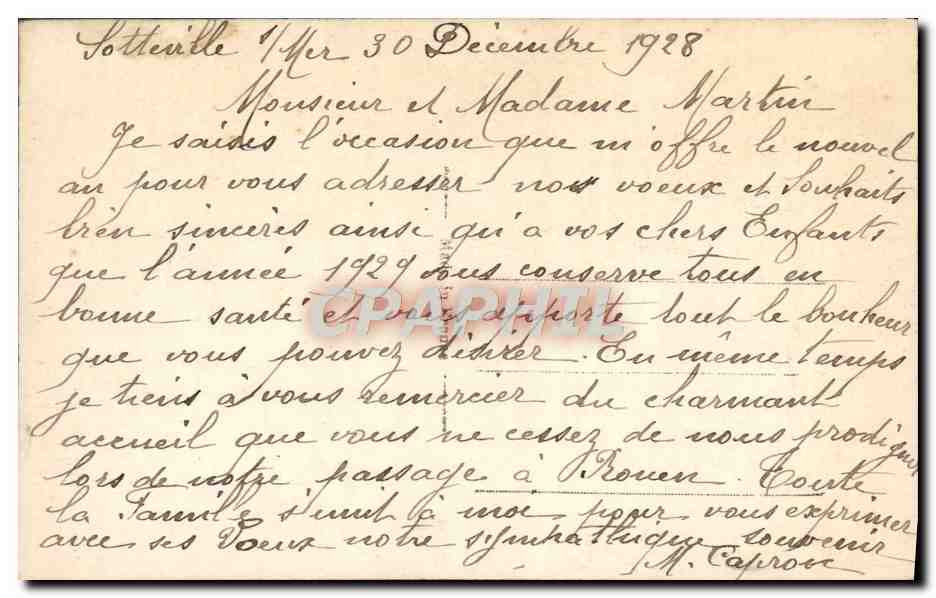 Sotteville s/Mer 30 Décembre 1928
Monsieur et Madame Martin
Je saisis l'occasion que m'offre le nouvel
an pour vous adresser nos voeux et Souhaits
bien sincères ainsi qu'a vos chers Enfants
que l'année 1929 vous conserve tous en
bonne santé et vous apporte tout le bonheur
que vous pouvez désirer. En même temps
je tiens à vous remercier du charmant
accueil que vous ne cessez de nous prodiguer
lors de notre passage à Rouen. Toute
la Famille s'unit à moi pour vous exprimer
avec ses Voeux notre sympathique souvenir
M. Capron
CPAPHIL